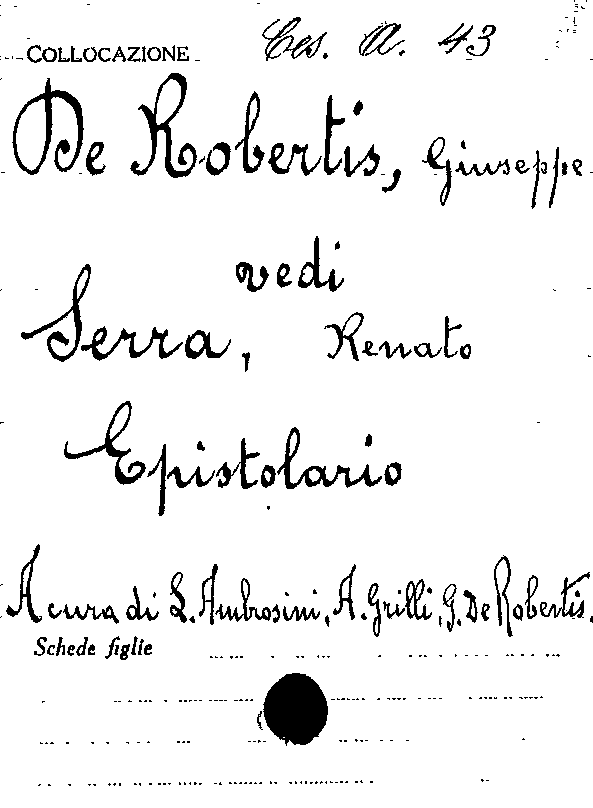 COLLOCAZIONE Ces. A. 43
De Robertis, Giuseppe
vedi
Serra, Renato
Epistolario
A cura di L. Ambrosini, A. Grilli, G. De Robertis.
Schede figlie